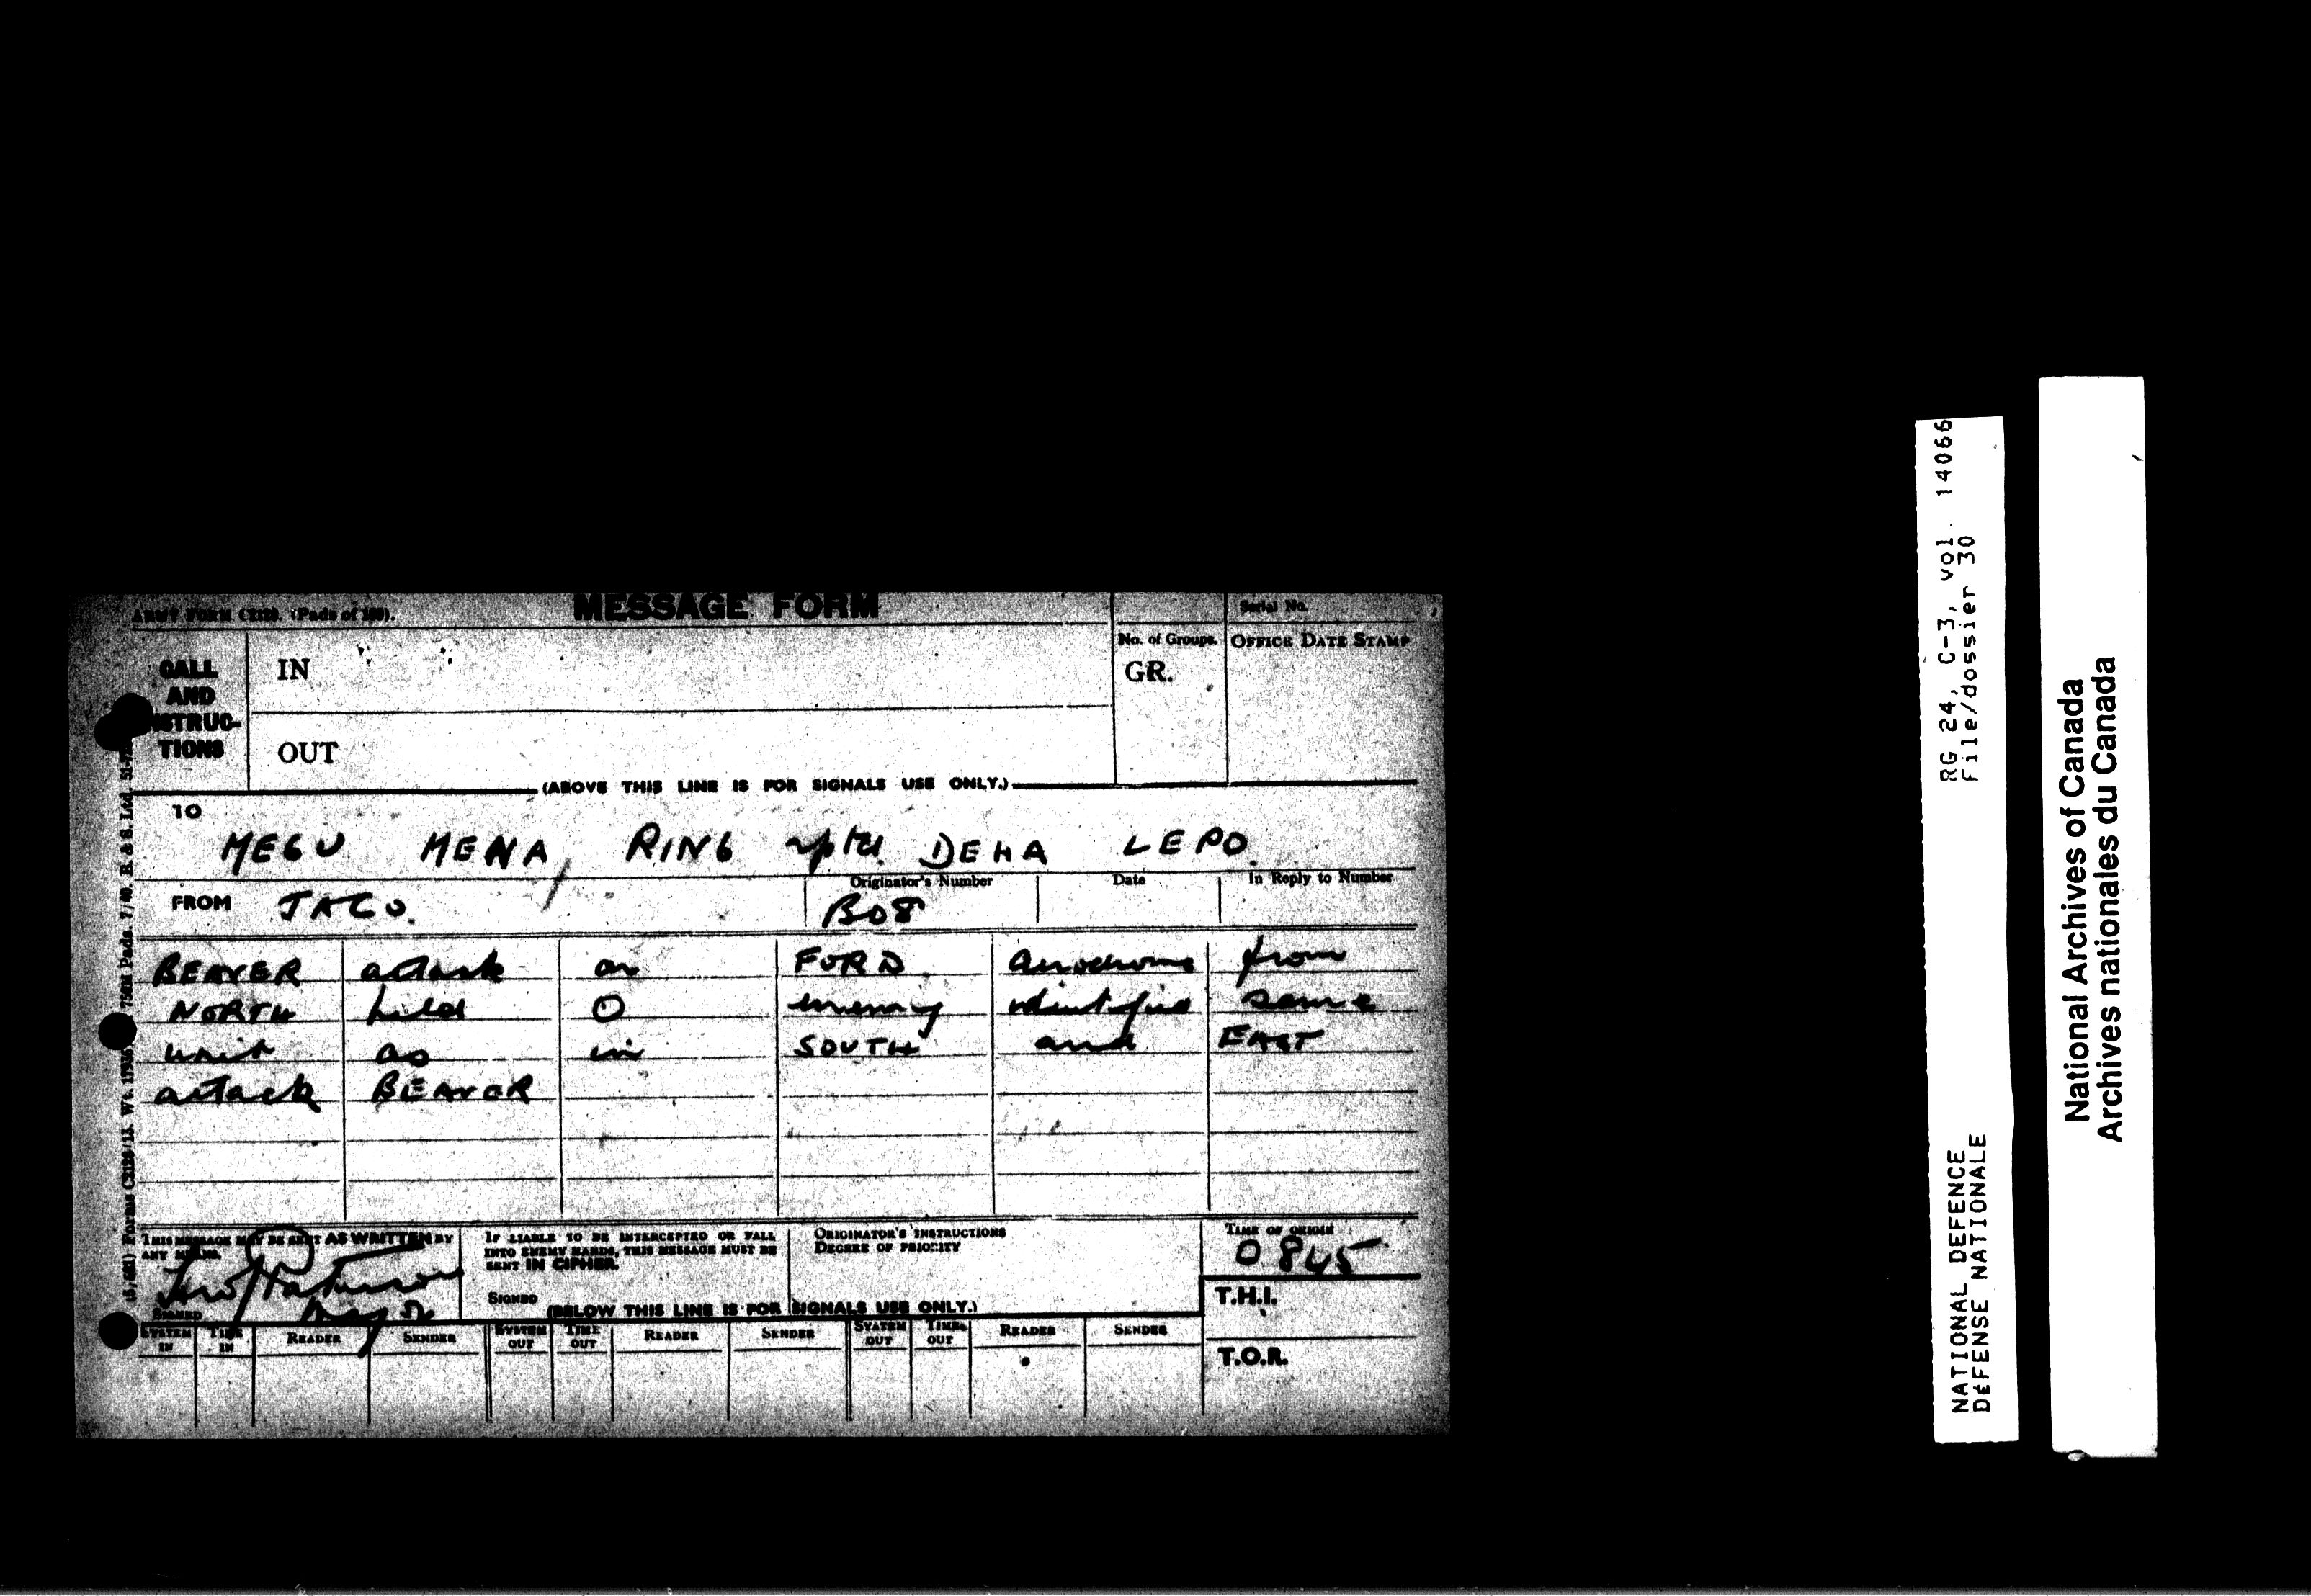 ARMY FORM C2128. (Pads of 100).
MESSAGE FORM
Serial No.
CALL AND INSTRUC-TIONS
IN
OUT
No. of Groups.
GR.
OFFICE DATE STAMP
(ABOVE THIS LINE IS FOR SIGNALS USE ONLY.)
TO
MEGU MENA, RING rptd DEHA LEPO.
FROM JACO.
Originator's Number
B08
Date
In Reply to Number
BEAVER attack on FORD aerodrome from
NORTH held O enemy identified same
unit as in SOUTH and EAST
attack BEAVER
THIS MESSAGE MAY BE SENT AS WRITTEN BY ANY MEANS.
SIGNED
IF LIABLE TO BE INTERCEPTED OR FALL INTO ENEMY HANDS, THIS MESSAGE MUST BE SENT IN CIPHER.
SIGNED
ORIGINATOR'S INSTRUCTIONS
DEGREE OF PRIORITY
TIME OF ORIGIN
0845
T.H.I.
T.O.R.
(BELOW THIS LINE IS FOR SIGNALS USE ONLY.)
SYSTEM IN TIME IN READER SENDER SYSTEM OUT TIME OUT READER SENDER SYSTEM OUT TIME OUT READER SENDER
RG 24, C-3, vol. 14066
File/dossier 30
NATIONAL DEFENCE
DÉFENSE NATIONALE
National Archives of Canada
Archives nationales du Canada